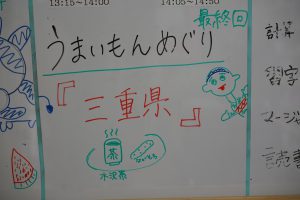 13:15～14:00
14:05～14:50
最終回
うまいもんめぐり
『三重県』
茶
ないしょ
水沢茶
計算
習字
読書